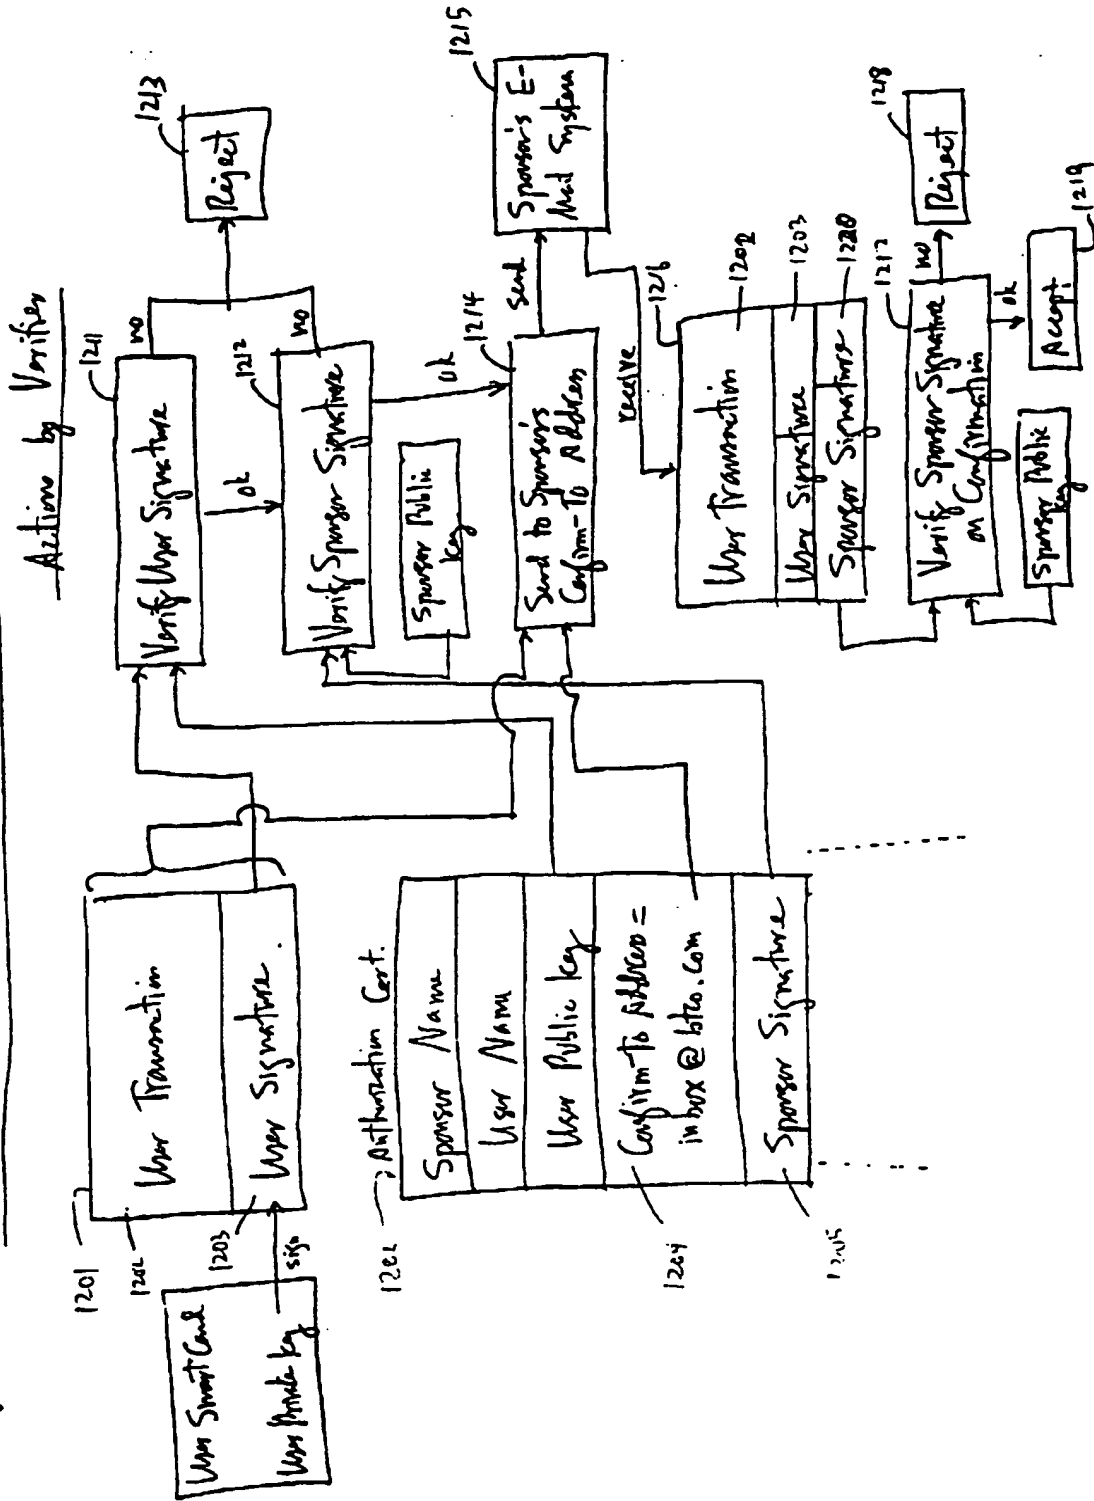 Action by Verifier
1201
1202
User Transaction
1203
User Signature.
User Smart Card
User Private Key
sign
Authorization Cert.
Sponsor Name
User Name
User Public Key
1204
Confirm-To Address =
inbox@btco.com
1205
Sponsor Signature
1211
Verify User Signature
no
ok
1213
Reject
1212
Verify Sponsor Signature
no
ok
Sponsor Public
Key
1214
Send to Sponsor's
Confirm-To Address
send
1215
Sponsor's E-
Mail System
receive
1216
User Transaction
1202
User Signature
1203
Sponsor Signature
1220
1217
Verify Sponsor Signature
on Confirmation
no
1218
Reject
ok
Sponsor Public
Key
Accept
1219